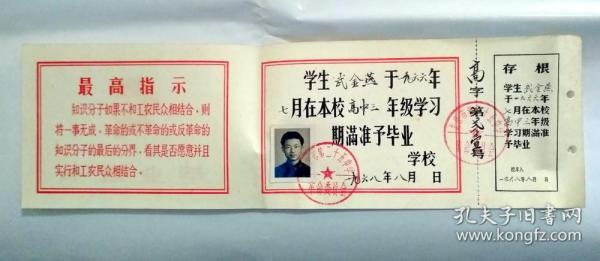 最高指示
知识分子如果不和工农民众相结合，则
将一事无成。革命的或不革命的或反革命的
知识分子的最后的分界，看其是否愿意并且
实行和工农民众相结合。
学生武金燕于一九六六年
七月在本校高中三年级学习
期滿准予毕业
学校
一九六八年八月 日
革命委员会
高字第
存根
学生武金燕
于一九六六年
七月在本校
高中三年级
学习期滿准
予毕业
一九六八年八月 日
孔夫子旧书网
www.kongfz.com